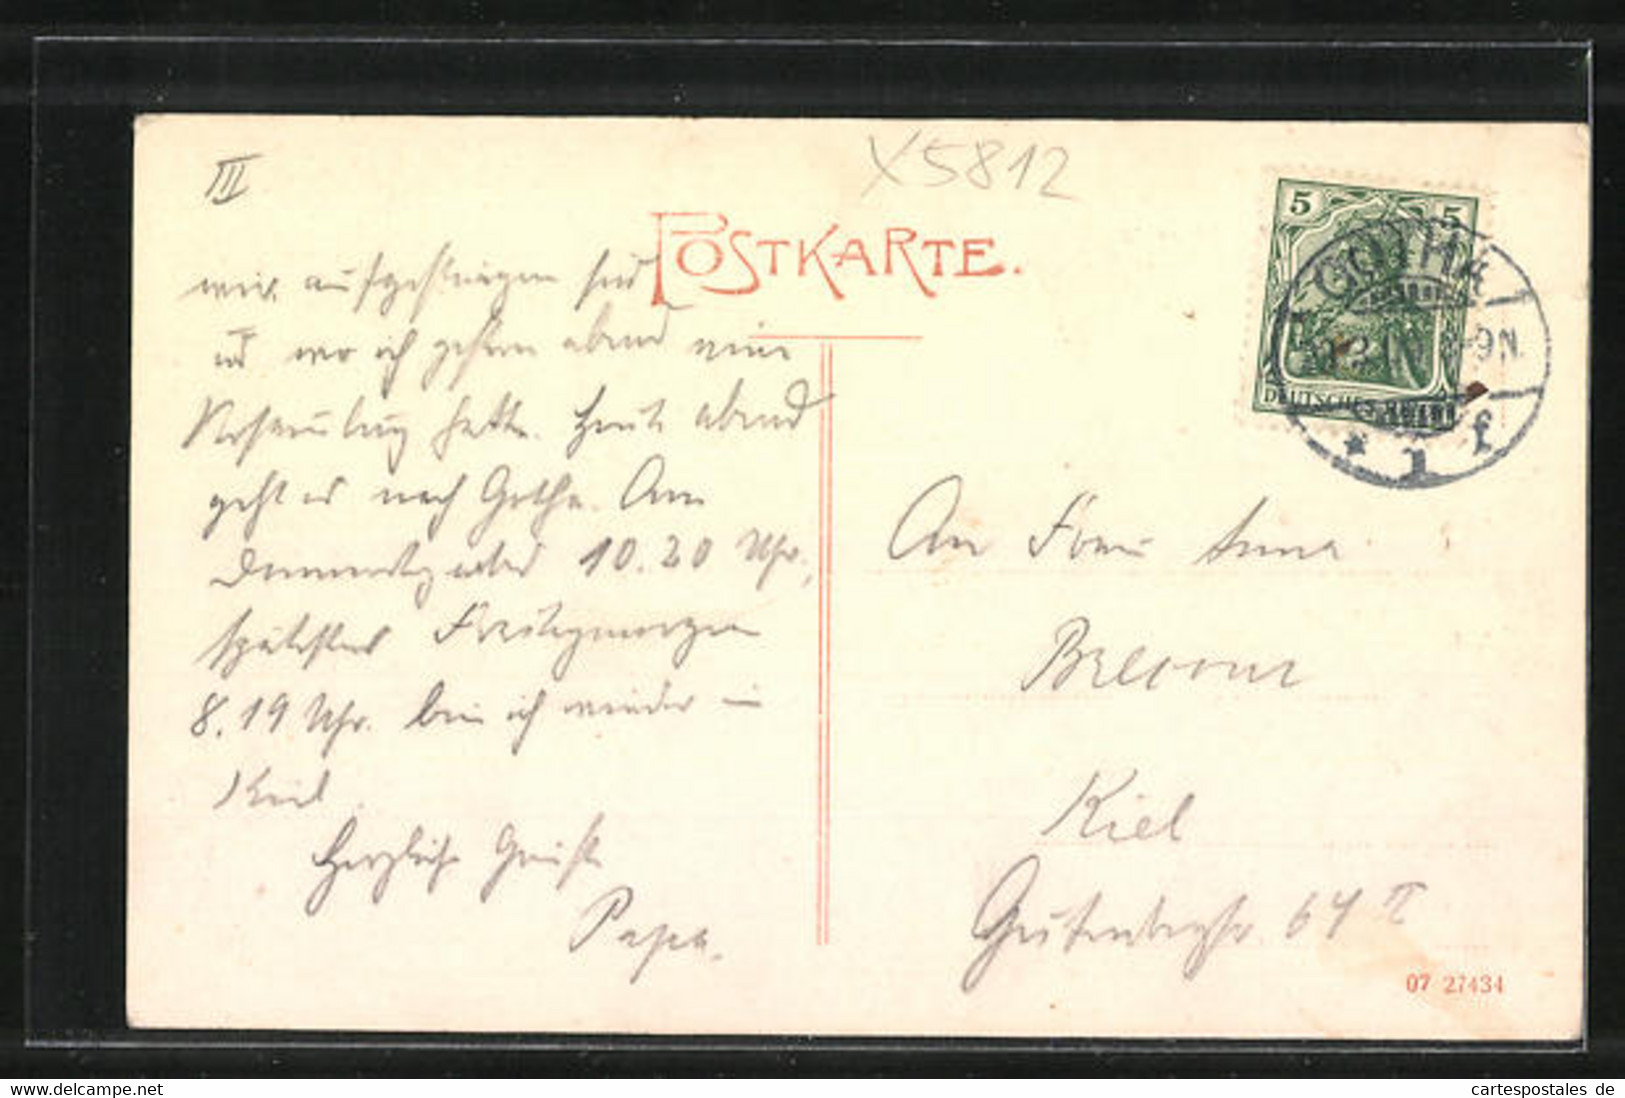 III
X5812
POSTKARTE.
5 5
GOTHA
-9N.
DEUTSCHES REICH
* 1 f
wir aufgestiegen sind
und wo ich gestern abend eine
hatte. Heute abend
geht es nach Gotha. Am
Donnerstag abend 10.20 Uhr,
spätestens Freitagmorgen
8.19 Uhr. bin ich wieder in
Kiel.
Herzliche Grüße
Papa.
An Frau Anna
Kiel
Gutenbergstr. 64 II
07 27434
cartespostales de